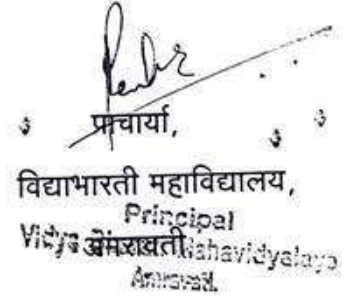 प्राचार्या,
विद्याभारती महाविद्यालय,
Principal
अमरावती
Vidya Mahavidyalaya
Amravati.